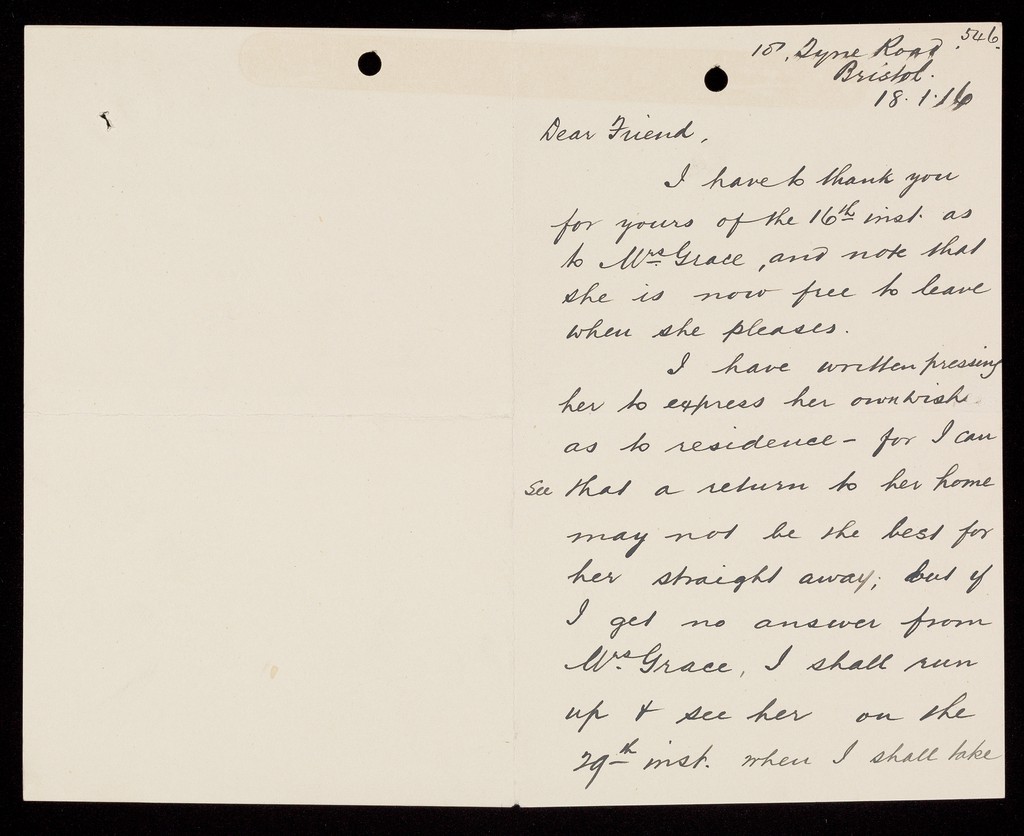 546.
10, Tyne Road
Bristol.
18.1.16
Dear Friend,
I have to thank you
for yours of the 16th inst. as
to Mrs. Grace, and note that
she is now free to leave
when she pleases.
I have written pressing
her to express her own wish
as to residence – for I can
see that a return to her home
may not be the best for
her straight away; but if
I get no answer from
Mrs. Grace, I shall run
up & see her on the
29th inst. when I shall take